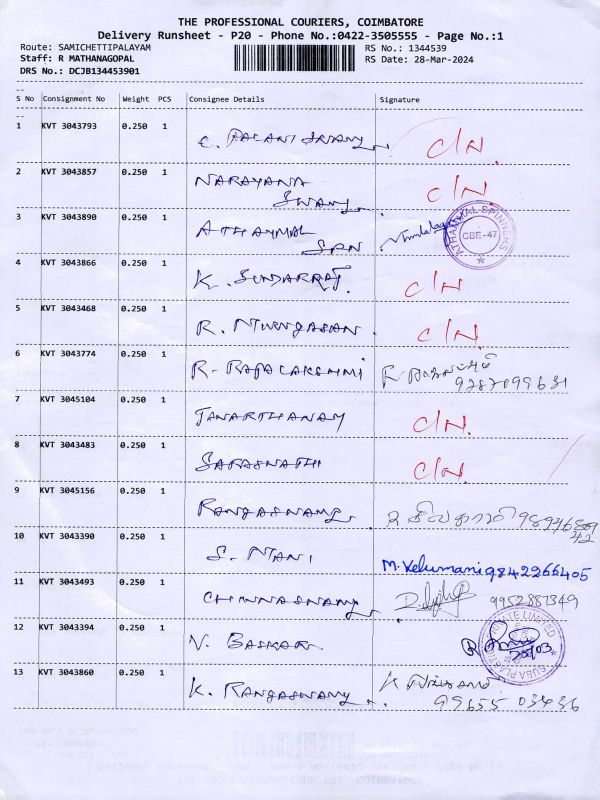 THE PROFESSIONAL COURIERS, COIMBATORE
Delivery Runsheet - P20 - Phone No.:0422-3505555 - Page No.:1
Route: SAMICHETTIPALAYAM RS No.: 1344539
Staff: R MATHANAGOPAL RS Date: 28-Mar-2024
DRS No.: DCJB134453901
S No Consignment No Weight PCS Consignee Details Signature
1 KVT 3043793 0.250 1 C. PALANISWAMY C/N.
2 KVT 3043857 0.250 1 NARAYANA C/N.
SWAMY
3 KVT 3043890 0.250 1 ATHAYMAL
SPN
ATHAYAMMAL SPINNERS
CBE-47
4 KVT 3043866 0.250 1 K. SUNDARRAJ. C/N
5 KVT 3043468 0.250 1 R. C/N.
6 KVT 3043774 0.250 1 R. RAJALAKSHMI R
9787099631
7 KVT 3045104 0.250 1 JANARTHANAN C/N.
8 KVT 3043483 0.250 1 SARASWATHI C/N.
9 KVT 3045156 0.250 1 RANGASWAMY R
10 KVT 3043390 0.250 1 S. MANI M. Velumani 9842266405
11 KVT 3043493 0.250 1 CHINNASWAMY 9952887349
12 KVT 3043394 0.250 1 N. BASKAR
13 KVT 3043860 0.250 1 K. RANGASWAMY K
99655 03436